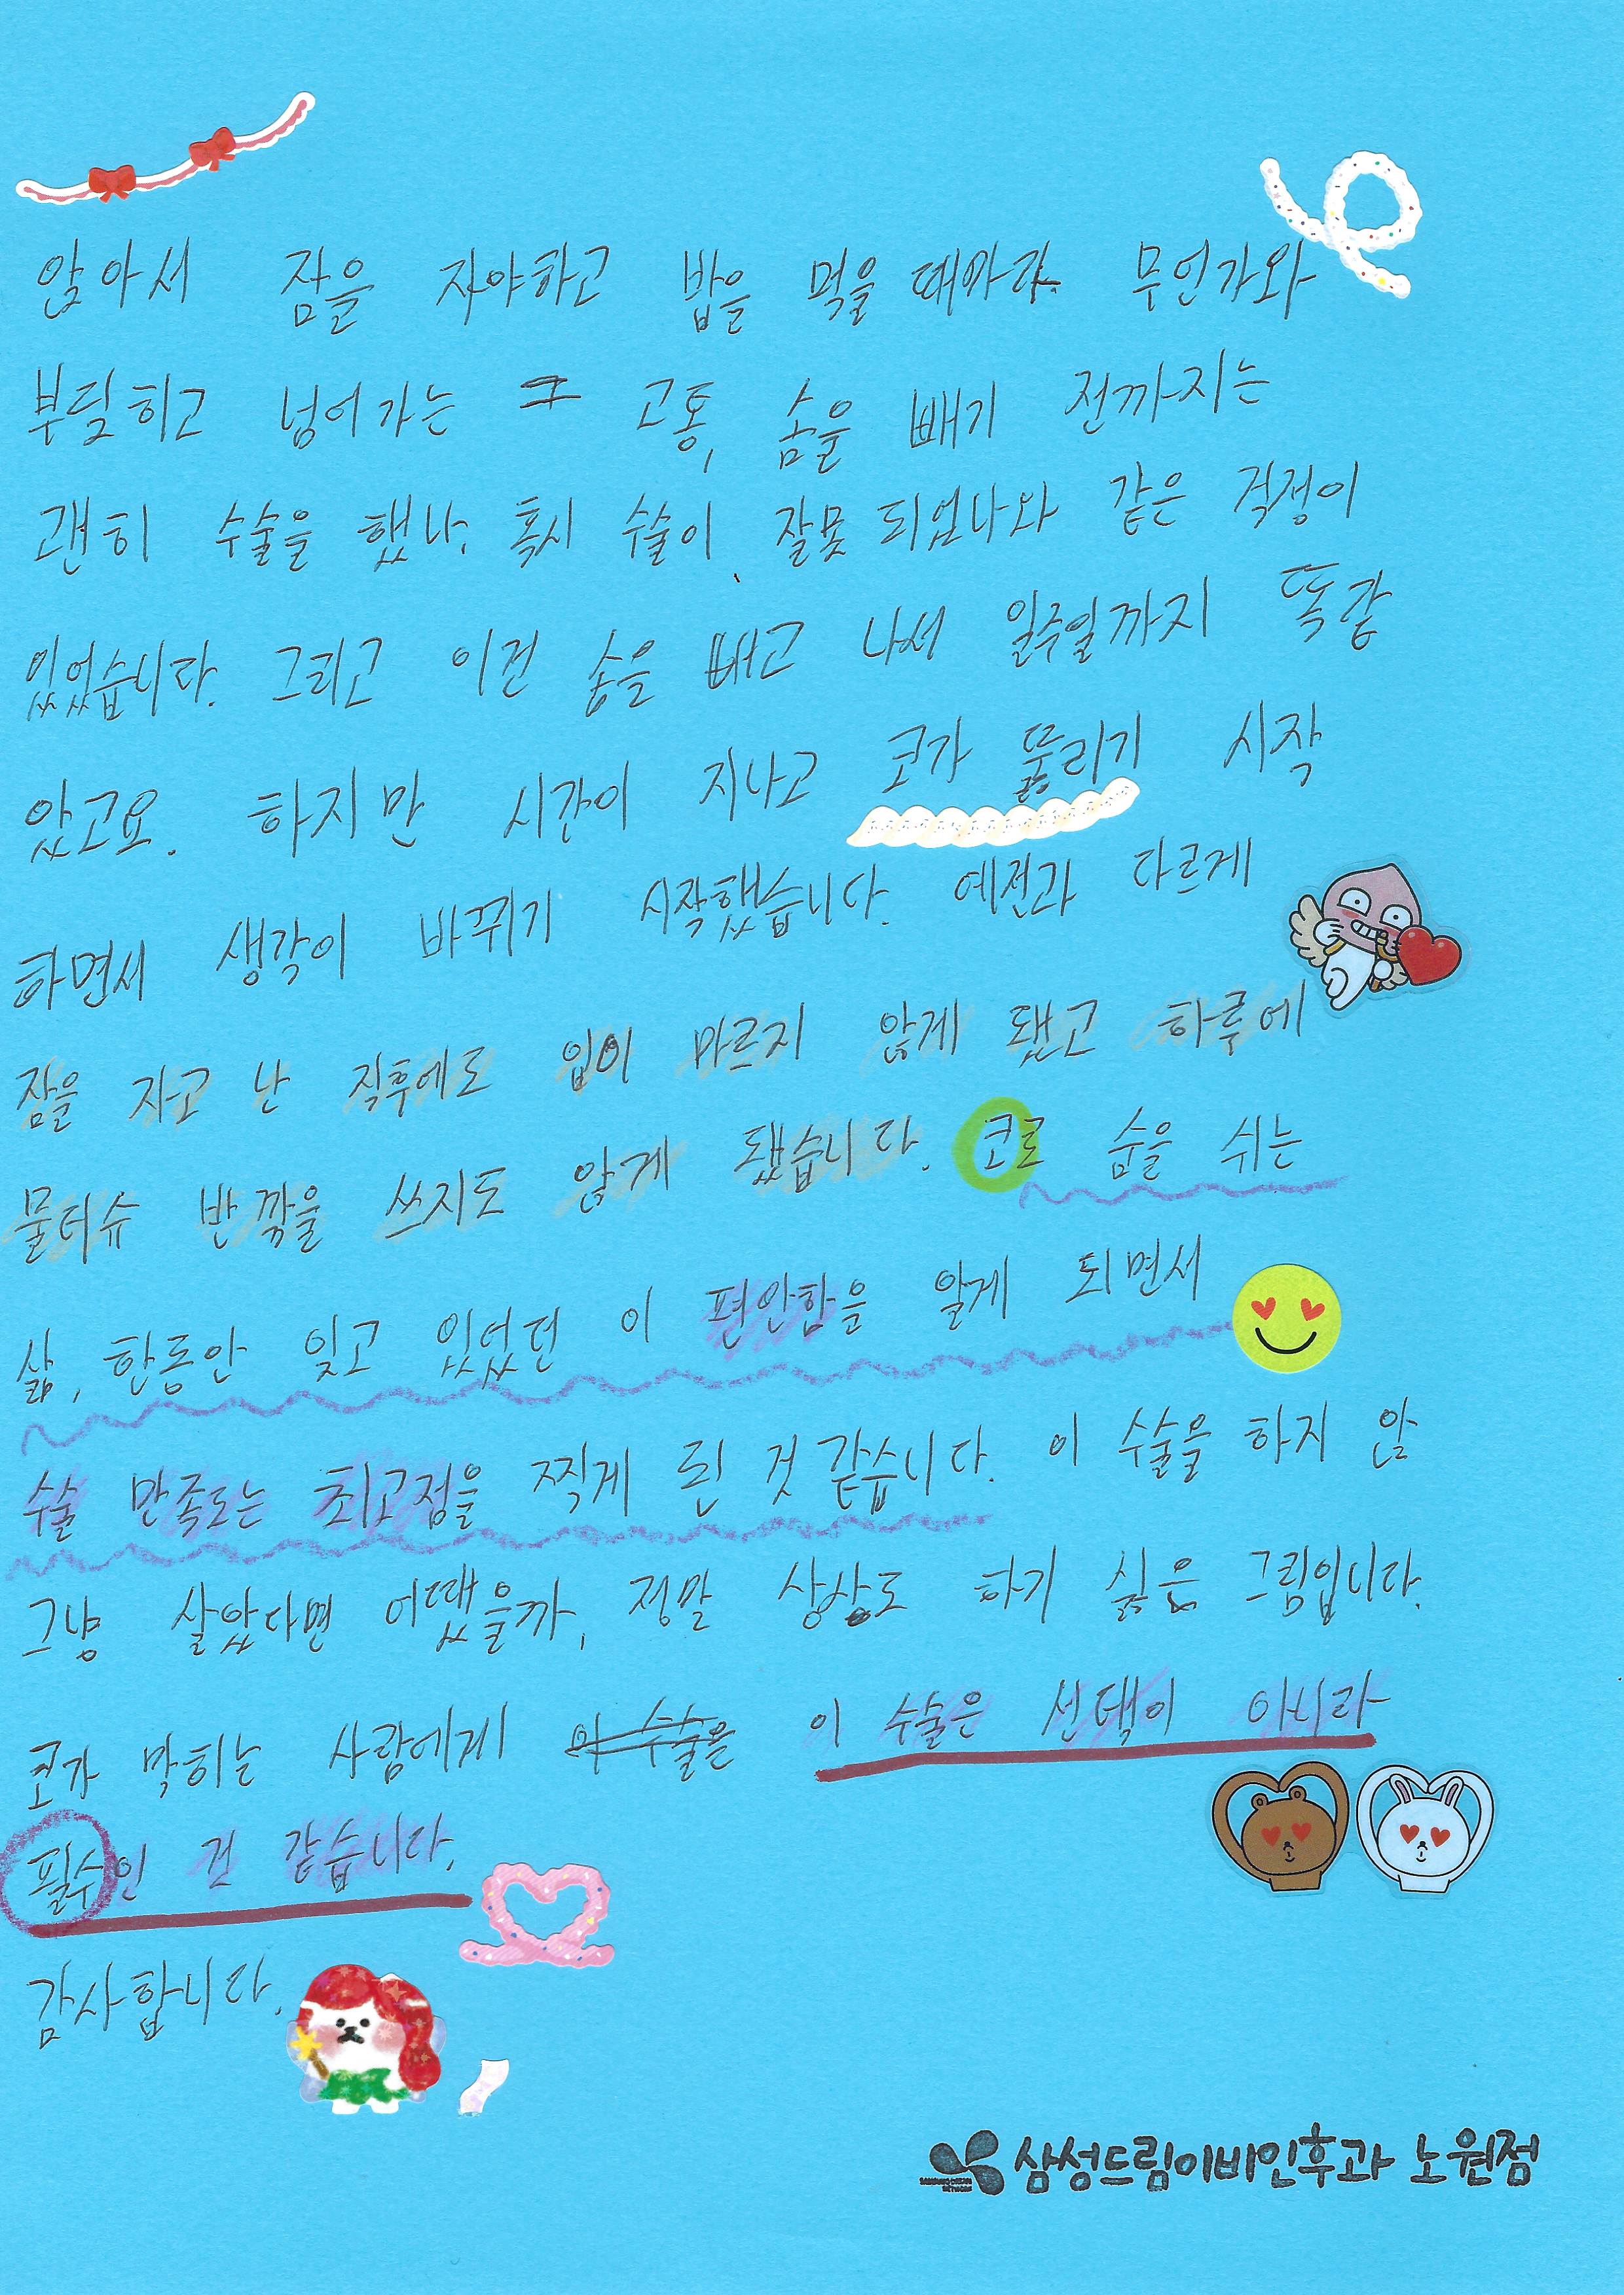 앉아서 잠을 자야하고 밥을 먹을 때마다 무언가와
부딪히고 넘어가는 그 고통, 솜을 빼기 전까지는
괜히 수술을 했나, 혹시 수술이 잘못 되었나와 같은 걱정이
있었습니다. 그리고 이건 솜을 빼고 나서 일주일까지 똑같
았고요. 하지만 시간이 지나고 코가 뚫리기 시작
하면서 생각이 바뀌기 시작했습니다. 예전과 다르게
잠을 자고 난 직후에도 입이 마르지 않게 됐고 하루에
물티슈 반 깎을 쓰지도 않게 됐습니다. 코로 숨을 쉬는
삶, 한동안 잊고 있었던 이 편안함을 알게 되면서
수술 만족도는 최고점을 찍게 된 것 같습니다. 이 수술을 하지 않
그냥 살았다면 어땠을까, 정말 상상도 하기 싫은 그림입니다.
코가 막히는 사람에게 이 수술은 선택이 아니라
필수인 건 같습니다.
감사합니다.
삼성드림이비인후과 노원점